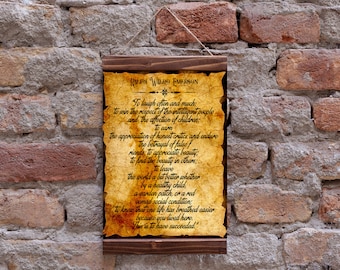 Ralph Waldo Emerson
To laugh often and much;
to win the respect of the intelligent people
and the affection of children;
to earn
the appreciation of honest critics and endure
the betrayal of false f
riends; to appreciate beauty;
to find the beauty in others;
to leave
the world a bit better whether
by a healthy child,
a garden patch, or a red
social condition;
to know that one life has breathed easier
because you lived here.
This is to have succeeded.